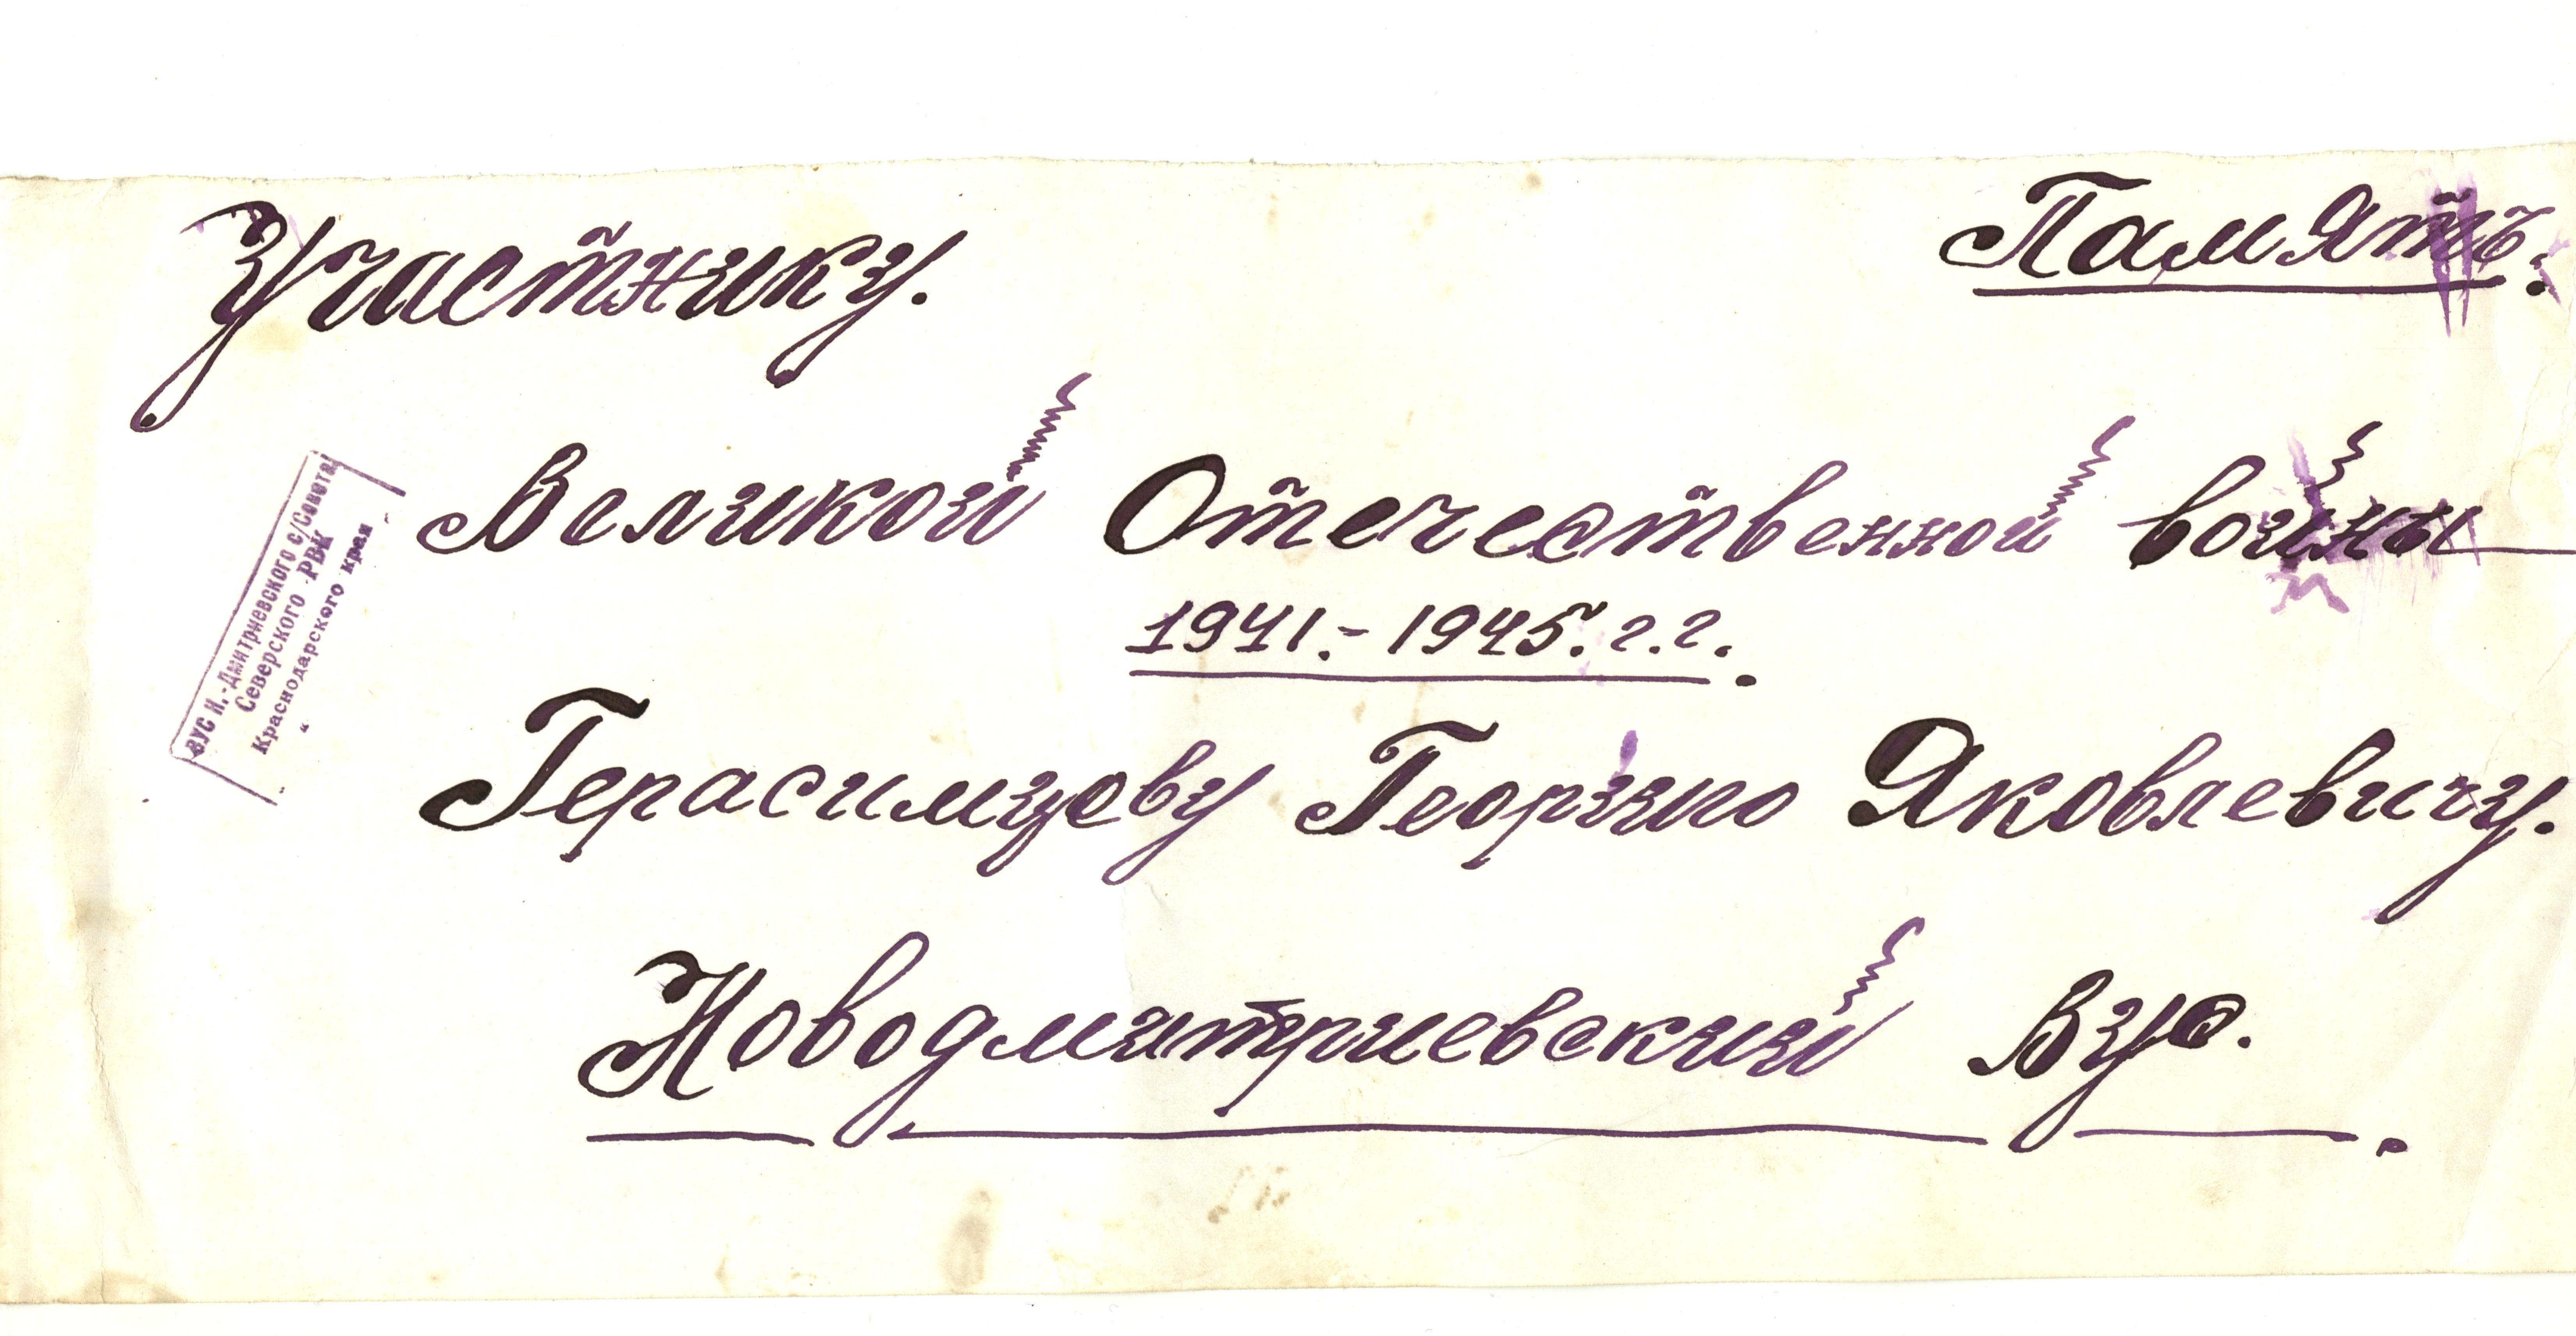 Участнику. Память.
Великой Отечественной войны
1941.-1945.г.г.
Герасимцеву Георгию Яковлевичу.
Новодмитриевский Вус.
ВУС Н.-Дмитриевского с/Совета
Северского РВК
Краснодарского края